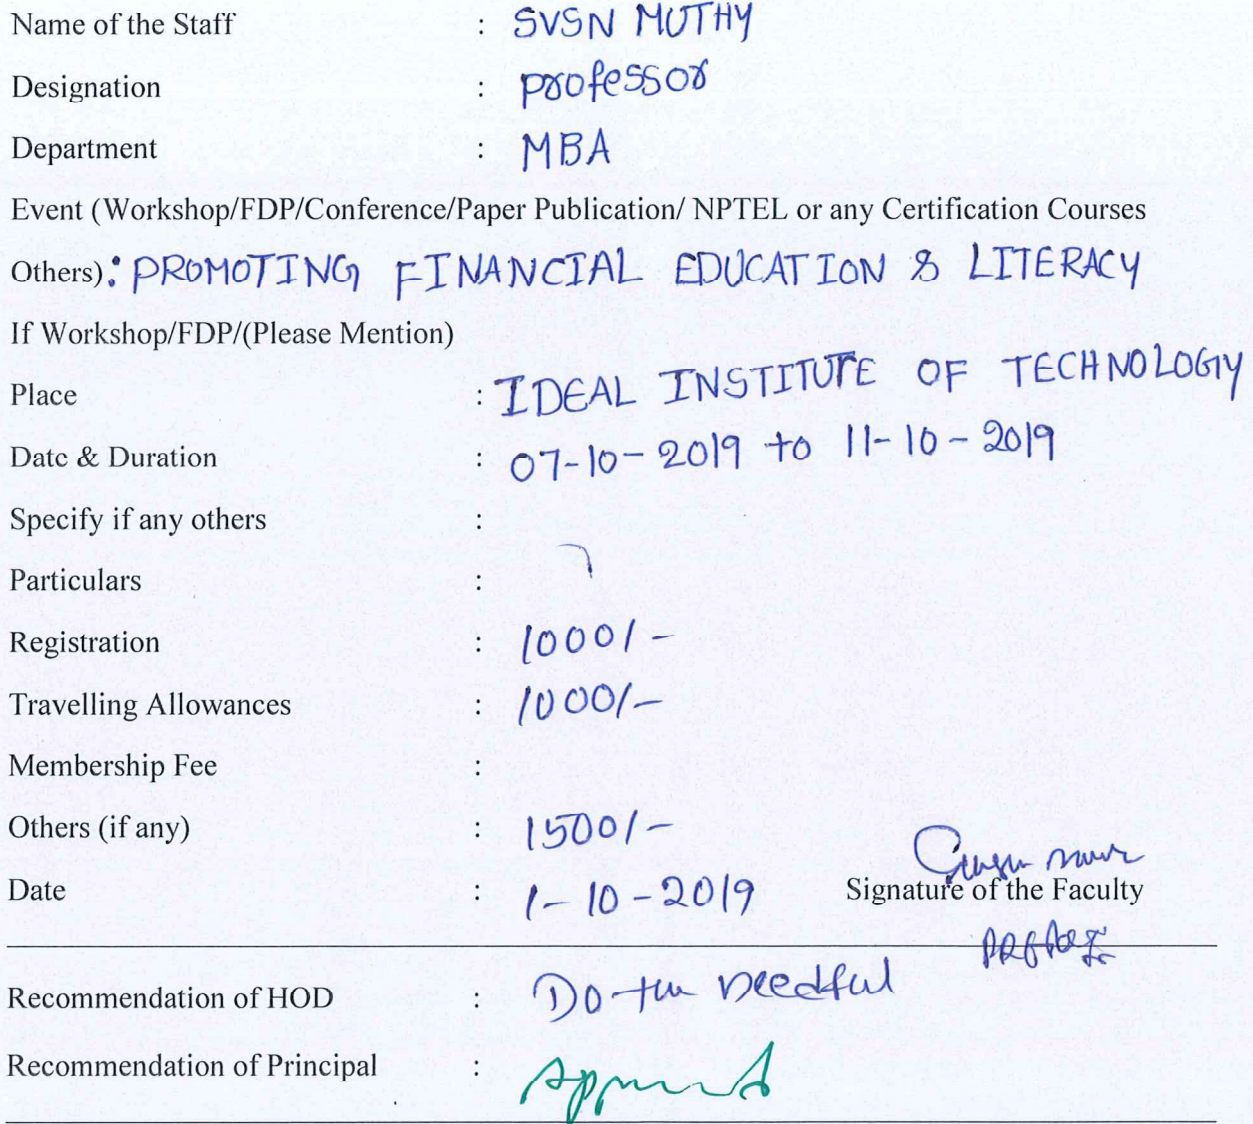 Name of the Staff : SVSN MUTHY
Designation : professor
Department : MBA
Event (Workshop/FDP/Conference/Paper Publication/ NPTEL or any Certification Courses
Others): PROMOTING FINANCIAL EDUCATION & LITERACY
If Workshop/FDP/(Please Mention)
Place : IDEAL INSTITUTE OF TECHNOLOGY
Date & Duration : 07-10-2019 to 11-10-2019
Specify if any others :
Particulars :
Registration : 1000/-
Travelling Allowances : 1000/-
Membership Fee :
Others (if any) : 1500/-
Date : 1-10-2019 Signature of the Faculty
Recommendation of HOD : Do the needful
Recommendation of Principal : Approved